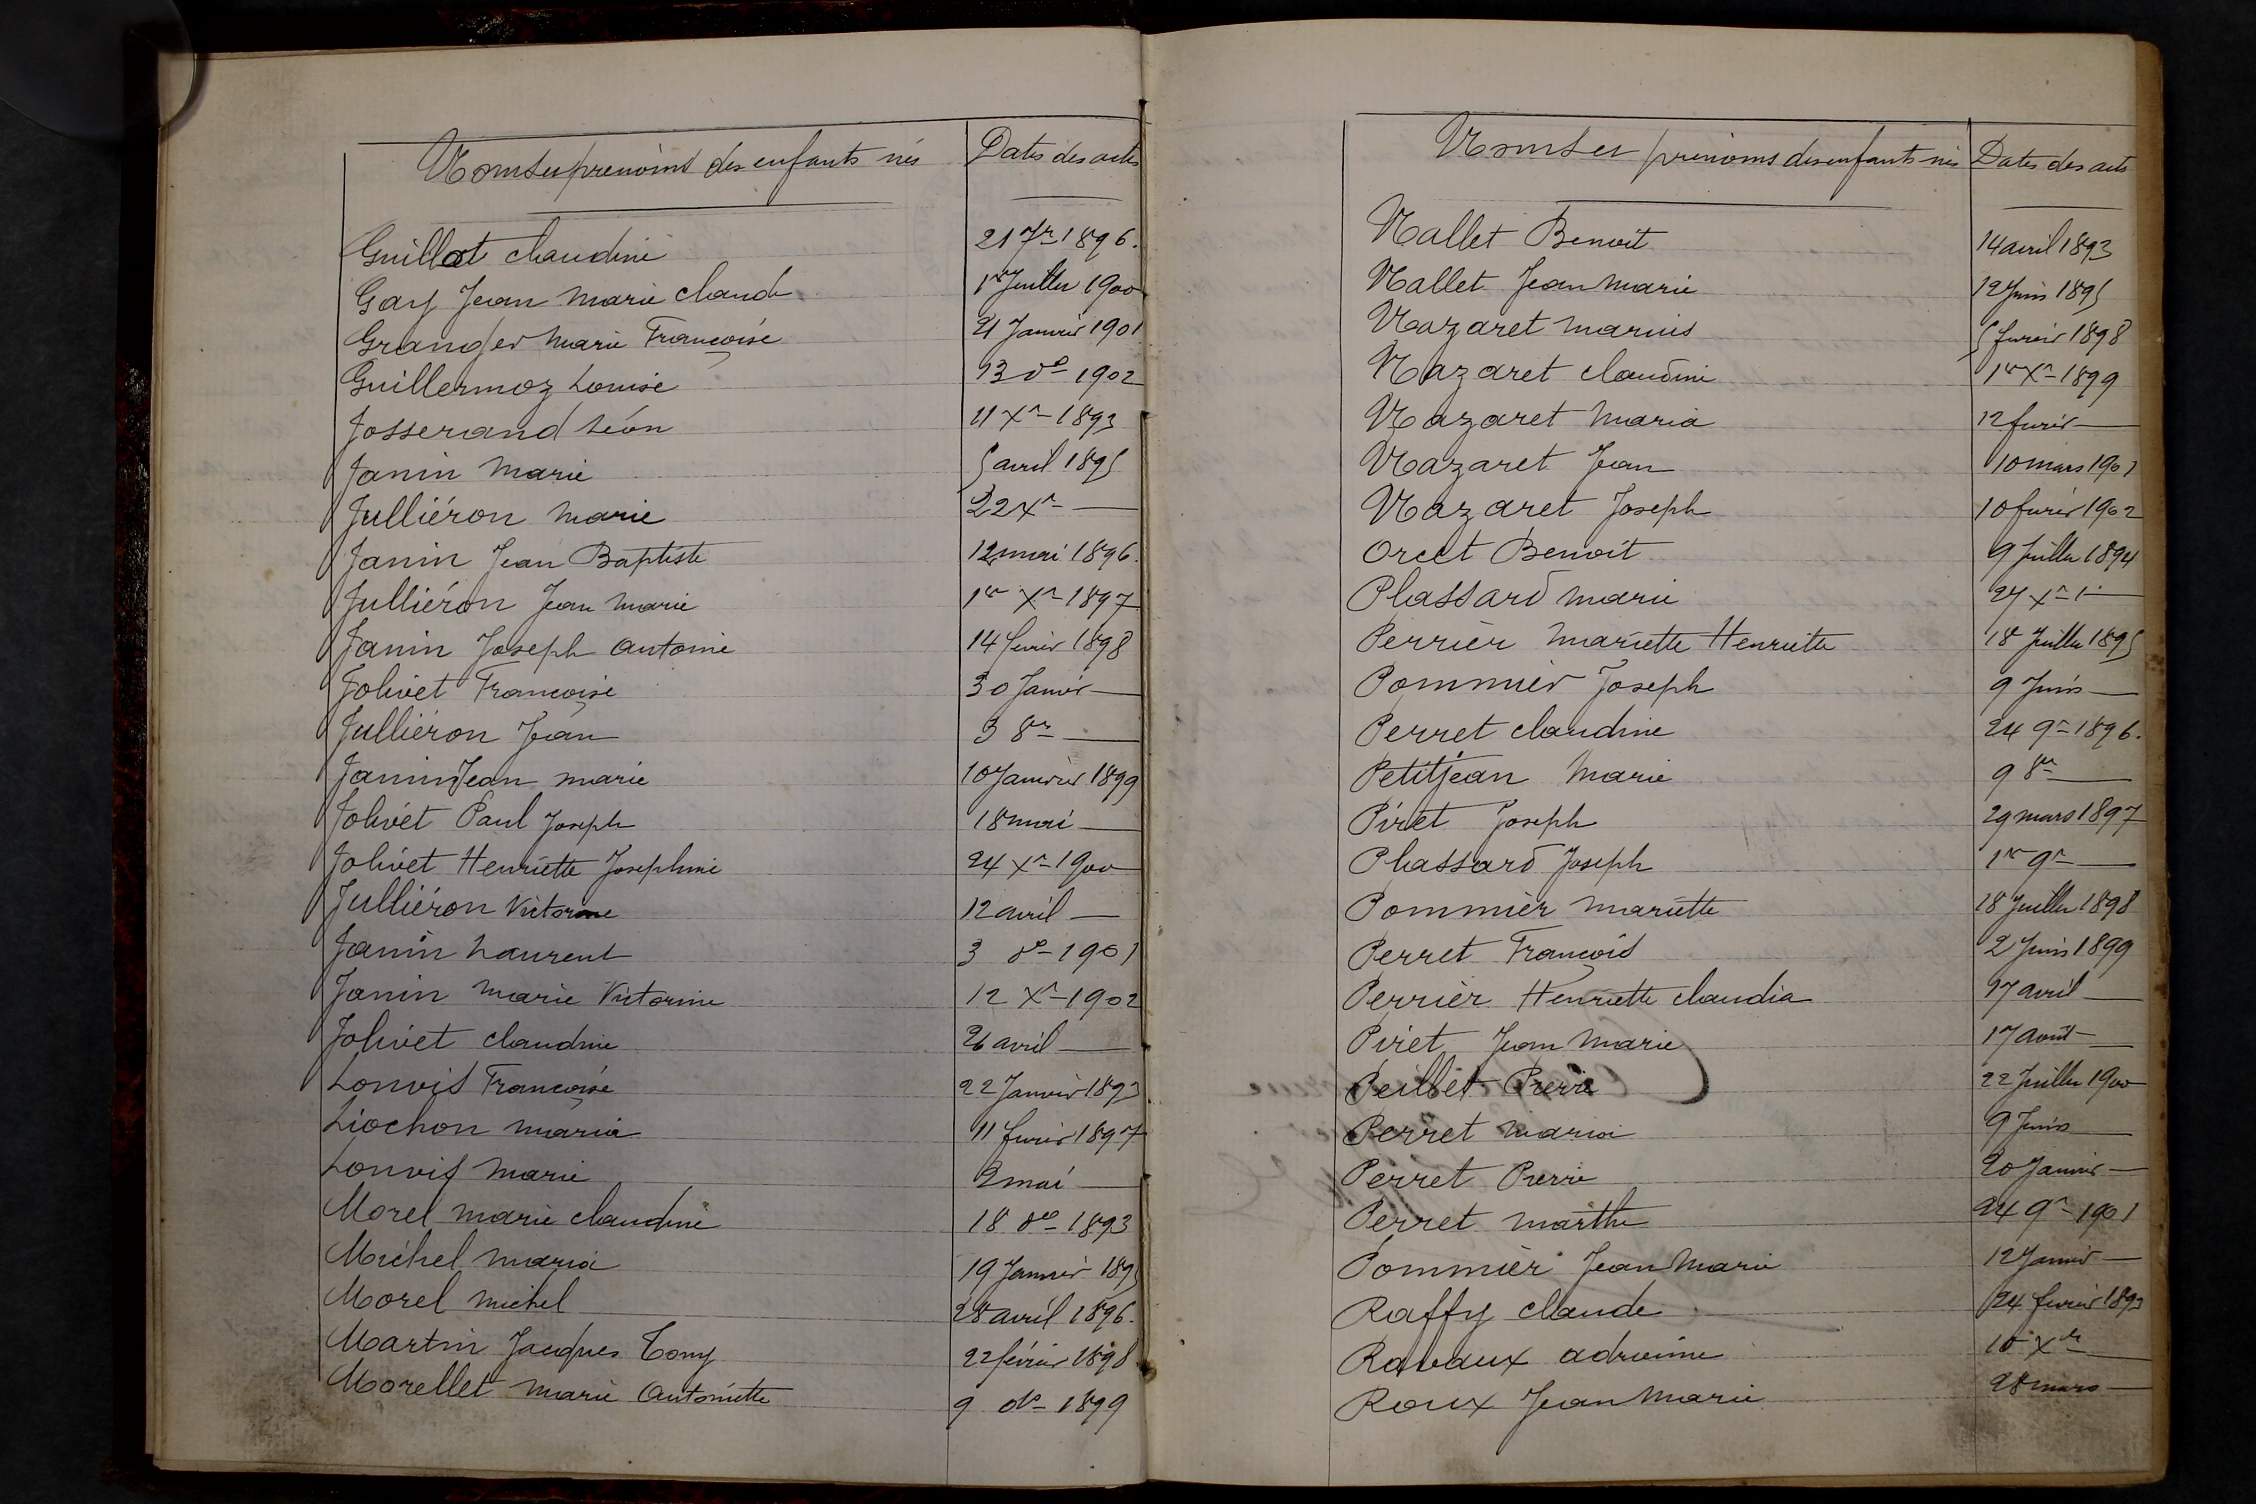 Noms et prénoms des enfants nés Dates des actes
Guillot Claudine 21 7r 1896.
Gay Jean Marie Claude 1er Juillet 1900
Granger Marie Françoise 21 Janvier 1901
Guillermoz Louise 13 do 1902
Josserand Léon 11 Xr 1893
Janin Marie 5 avril 1895
Julliéron Marie 22 Xr —
Janin Jean Baptiste 12 mai 1896.
Julliéron Jean Marie 1er Xr 1897
Janin Joseph Antoine 14 février 1898
Jolivet Françoise 30 Janvier —
Julliéron Jean 3 8re —
Janin Jean Marie 10 Janvier 1899
Jolivet Paul Joseph 18 mai —
Jolivet Henriette Josephine 24 Xr 1900
Julliéron Victorine 12 avril —
Janin Laurent 3 do 1901
Janin Marie Victorine 12 Xr 1902
Jolivet Claudine 26 avril —
Lonvis Françoise 22 Janvier 1893
Liochon Maria 11 février 1897
Lonvis Marie 2 mai —
Morel Marie Claudine 18 do 1893
Michel Maria 19 Janvier 1895
Morel Michel 28 avril 1896.
Martin Jacques Tony 22 février 1898
Morellet Marie Antoinette 9 do 1899
Noms et prénoms des enfants nés Dates des actes
Nallet Benoit 14 avril 1893
Nallet Jean Marie 12 Juin 1895
Nazaret Marius 5 février 1898
Nazaret Claudine 1er Xr 1899
Nazaret Maria 12 février —
Nazaret Jean 10 mars 1901
Nazaret Joseph 10 février 1902
Orcet Benoit 9 Juillet 1894
Plassard Marie 27 Xr —
Perrier Mariette Henriette 18 Juillet 1895
Pommier Joseph 9 Juin —
Perret Claudine 24 9r 1896.
Petitjean Marie 9 8re —
Piret Joseph 29 mars 1897
Plassard Joseph 1er 9r —
Pommier Mariette 18 Juillet 1898
Perret François 2 Juin 1899
Perrier Henriette Claudia 17 avril —
Piret Jean Marie 17 août —
Peillet Pierre 22 Juillet 1900
Perret Maria 9 Juin —
Perret Pierre 20 Janvier —
Perret Marthe 24 9r 1901
Pommier Jean Marie 12 Janvier —
Raffy Claude 24 février 1893
Ravaux Adrienne 10 Xre —
Roux Jean Marie 28 mars —